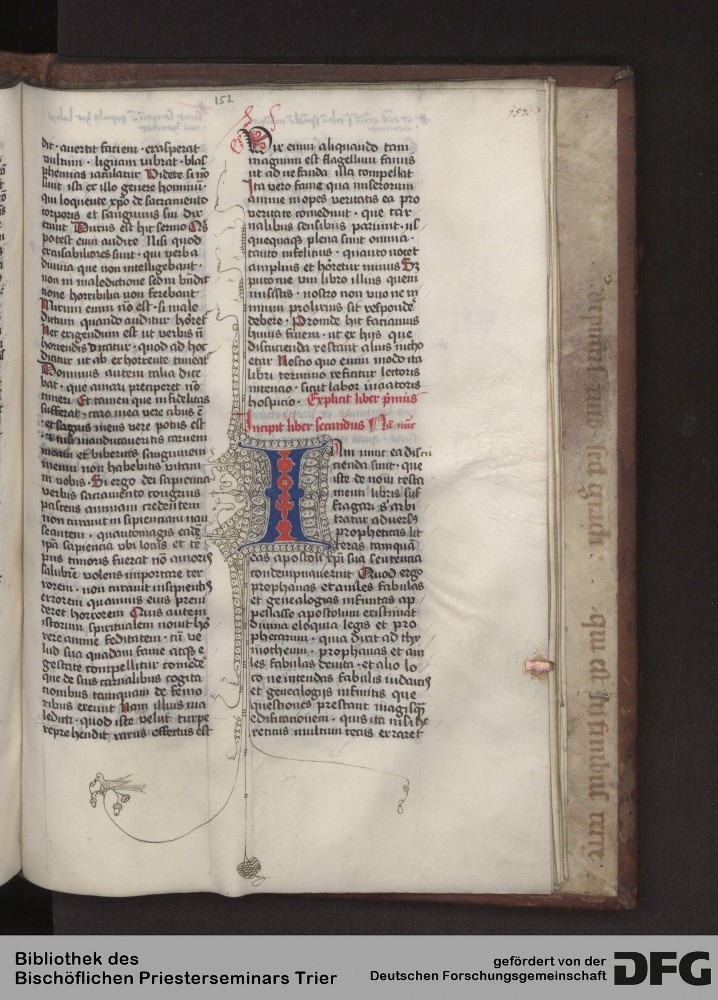 152
dit · auertit faciem · exasperat
uultum · liguam uibrat · blas
phemias iaculatur Videte si nō
sunt ista ex illo genere hominū ·
qui loquente xpō de sacramento
corporis et sanguinis sui dix
erunt Durus est hic sermo Qīs
potest eum audire Nisi quod
excusabiliores sunt · qui uerba
diuina que non intellegebant ·
non in maledictione sed in bn̄dic
tione horribilia non ferebant
Mirum enim nō est · si male
dictum quando auditur horret
Nec exigendum est ut uerbis ī
horrendis dicatur · quod ad hoc
dicitur ut ab exhorrente timeat
Dominus autem talia dice
bat · que amari preciperet nō
timeri Et tamen que infidelitas
sufferat · caro mea vere cibus ē
et sāguis meus vere potus est
manducaueritis carnem
meam et biberitis sanguinem
meum non habebitis vitam
in vobis · Si ergo dei sapiencia
verbis sacramento congruis
pascens animam credentem
non curauit insipienciam nau
seantem · quantomagis eadē
ipā sapiencia vbi locus et tē
pus timoris fuerat nō amoris
salubrē volens importare ter
rorem · non curauit insipientis
errorem quamuis eius preui
deret horrorem Quis autem
istorum spiritualem nouit hō
rere anime feditatem · cū ve
lud sua quadam fame atque e
gestate compellitur comede
que de suis carnalibus cogita
tionibus tamquam de femo
ribus exeunt Nam illius ma
ledicti · quod iste velut turpe
reprehendit rarus effectus est
Vix enim aliquando tam
magnum est flagellum famis
ut ad nefanda illa compellat
Ita vero fame qua miserorum
anime inopes veritatis ea pro
veritate comedunt · que car
nalibus sensibus pariunt · iis
quequaque plena sunt omnia ·
tanto infelicius · quanto notet
amplius et horretur minus Sz
puto me vm libro illius quem
misistis · nostro non vno ne ni
mium prolixus sit respondē
debere · Proinde hic faciamus
huius finem · ut ex hijs que
discucienda restant alius incho
etur Nescio quo enim modo ita
libri termino reficitur lectoris
intencio · sicut labor viatoris
hospicio · Explicit liber p̄imus
Incipit liber secundus
Iam nunc ea discu
tienda sunt · que
iste de noui testa
menti libris suf
fragari s' arbi
tratur aduers'
propheticas lit
teras tamquā
eas apostoli xp̄i sua sentencia
condempnauerint Quod ergo
prophanas et aniles fabulas
et genealogias infinitas ap
pellasse apostolum existimat
diuina eloquia legis et pro
phetarum · quia dixit ad thy
motheum · prophanas et ani
les fabulas deuita · et alio lo
co ne intendas fabulis iudaicis
et genealogijs infinitis que
questiones prestant magisqz
edificationem · quis ita nisi he
reticus multum cecus erraret
Bibliothek des
Bischöflichen Priesterseminars Trier
gefördert von der
Deutschen Forschungsgemeinschaft
DFG